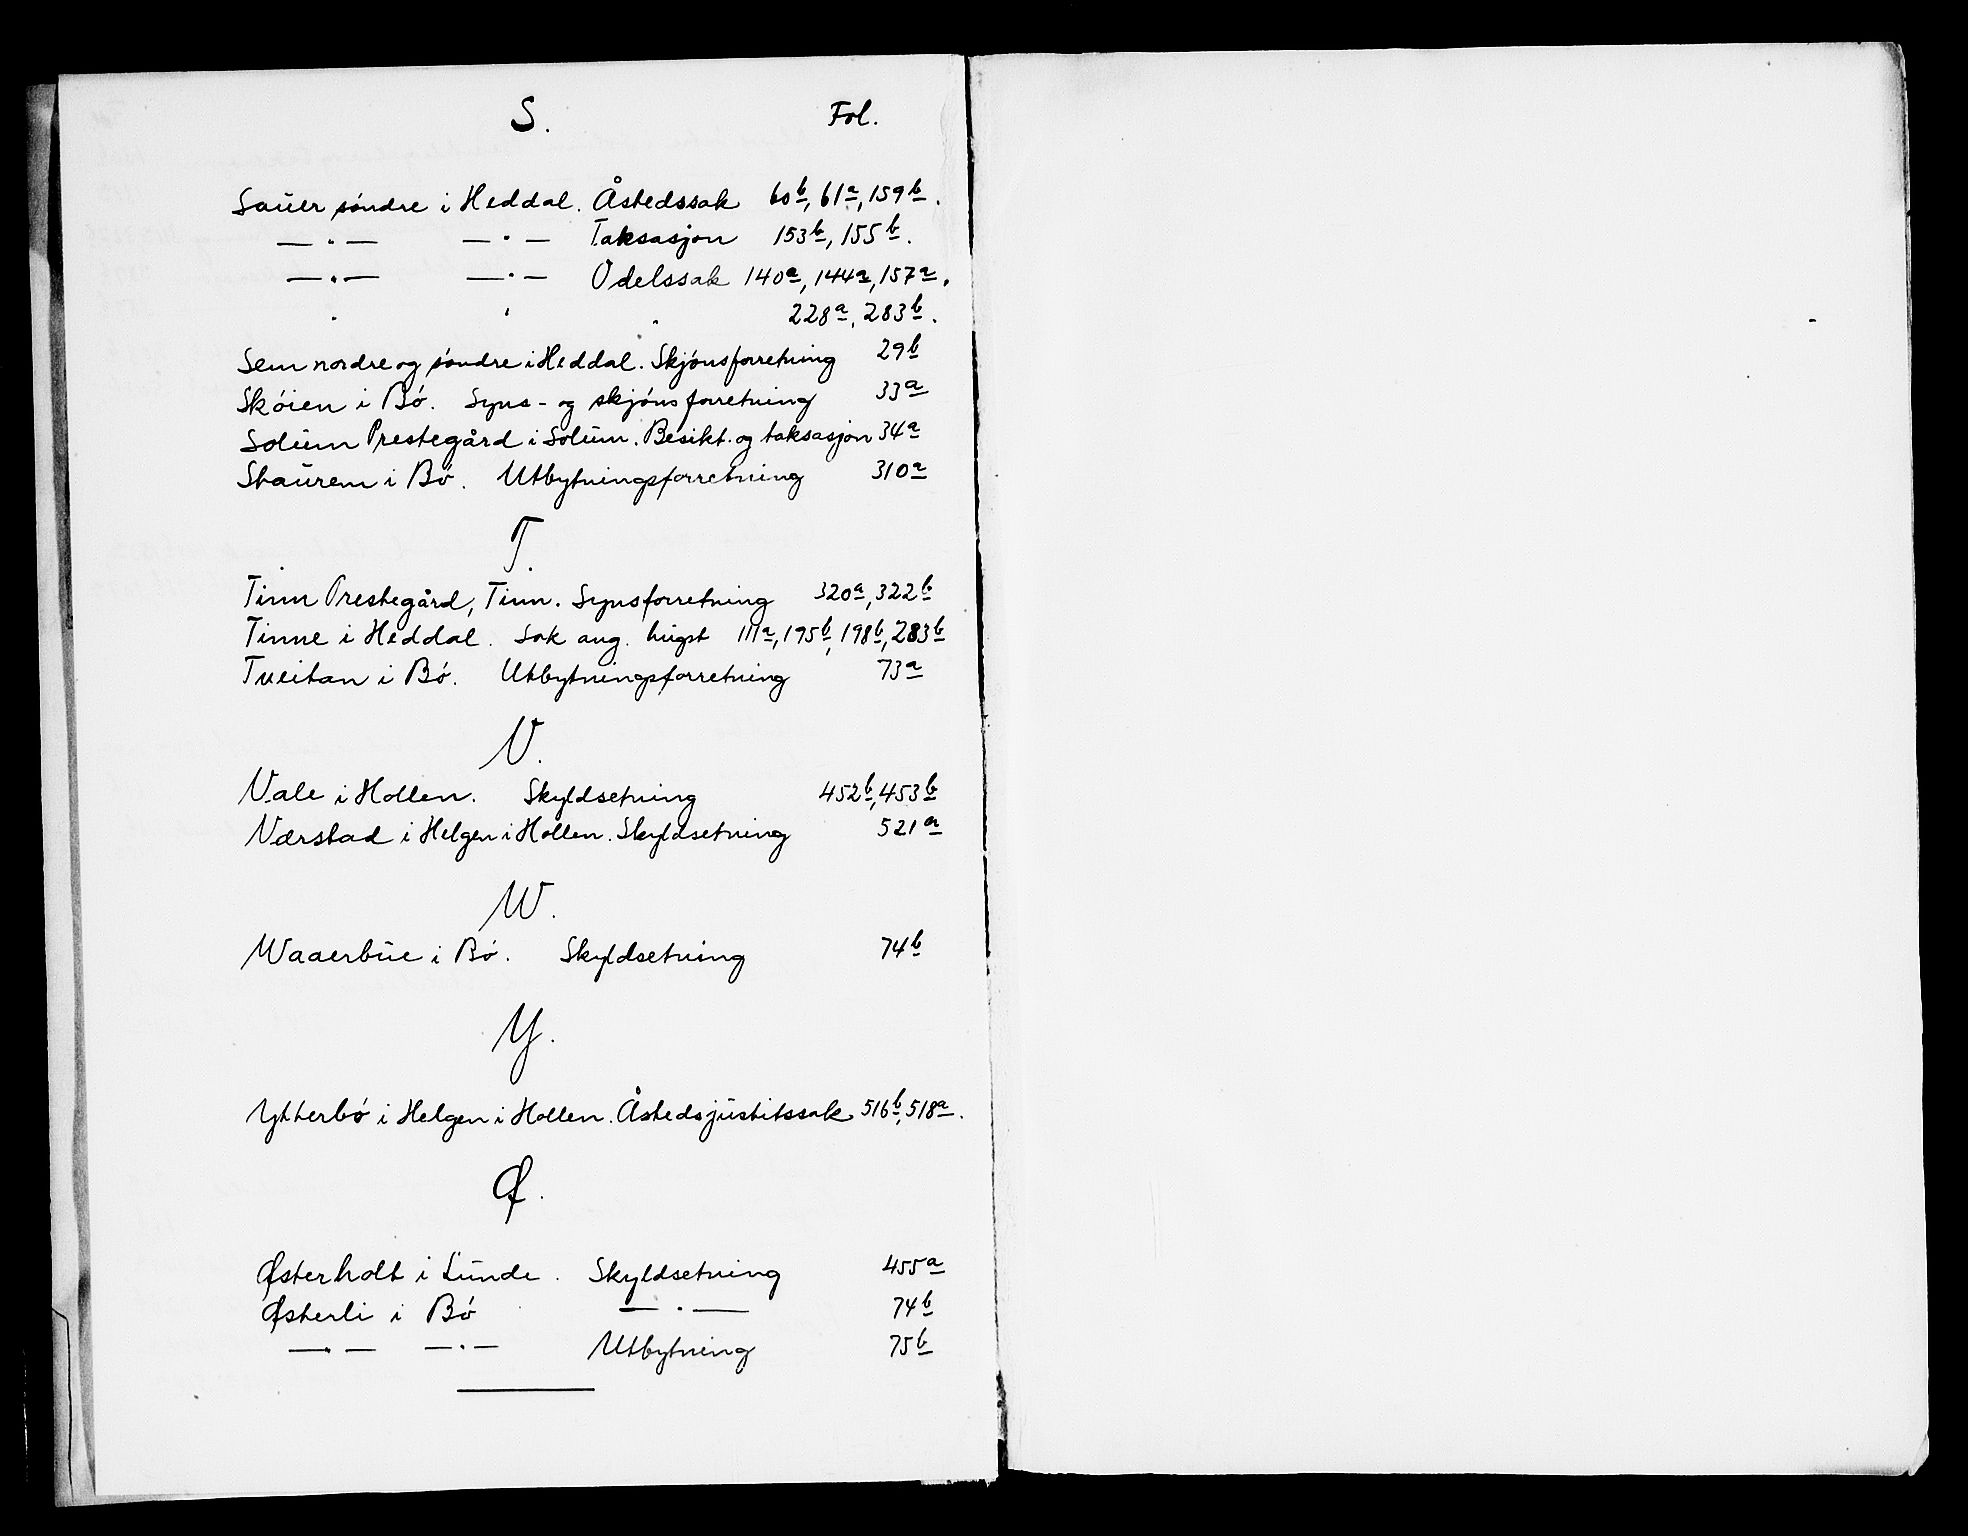 S. Fol.
Sauer søndre i Heddal. Åstedssak 60b, 61a, 159b.
— · — — · — Taksasjon 153b, 155b.
— · — — · — Odelssak 140a, 144a, 157a.
" " " 228a, 283b.
Sem nordre og søndre i Heddal. Skjønsforretning 29b
Skøien i Bø. Syns- og skjønsforretning 33a
Solum Prestegård i Solum. Besikt. og taksasjon 34a
Staurem i Bø. Utbytningsforretning 310a
T.
Tinn Prestegård, Tinn. Synsforretning 320a, 322b
Tinne i Heddal. Sak ang. hugst 111a, 195b, 198b, 283b
Tveitan i Bø. Utbytningsforretning 73a
V.
Vale i Hollen. Skyldsetning 452b, 453b
Værstad i Helgen i Hollen. Skyldsetning 521a
W.
Waaerbue i Bø. Skyldsetning 74b
Y.
Ytterbø i Helgen i Hollen. Åstedsjustitssak 516b, 518a.
Ø.
Østerholt i Lunde. Skyldsetning 455a
Østerli i Bø — · — 74b
— · — — · — Utbytning 75b